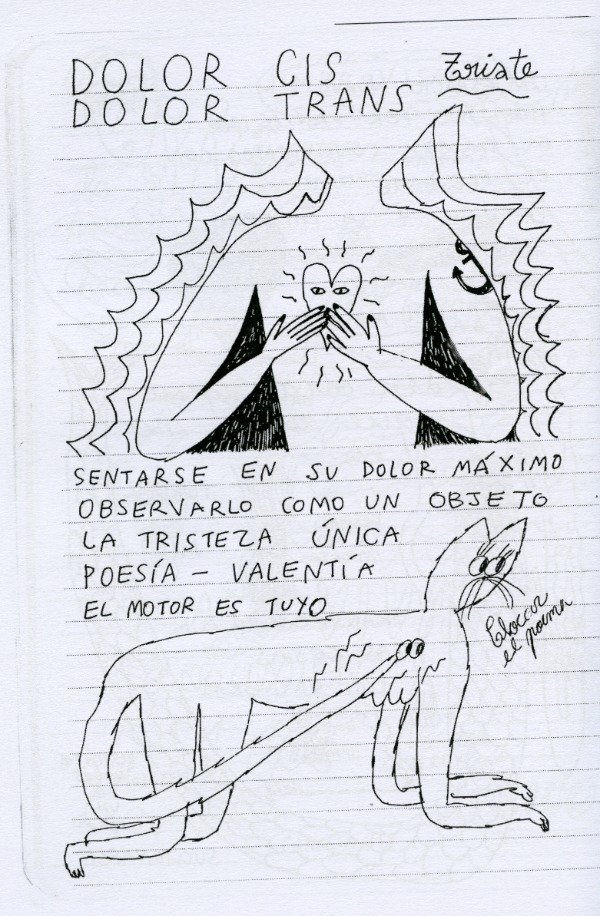 DOLOR CIS Triste
DOLOR TRANS
SENTARSE EN SU DOLOR MÁXIMO
OBSERVARLO COMO UN OBJETO
LA TRISTEZA ÚNICA
POESÍA – VALENTÍA
EL MOTOR ES TUYO
el poema